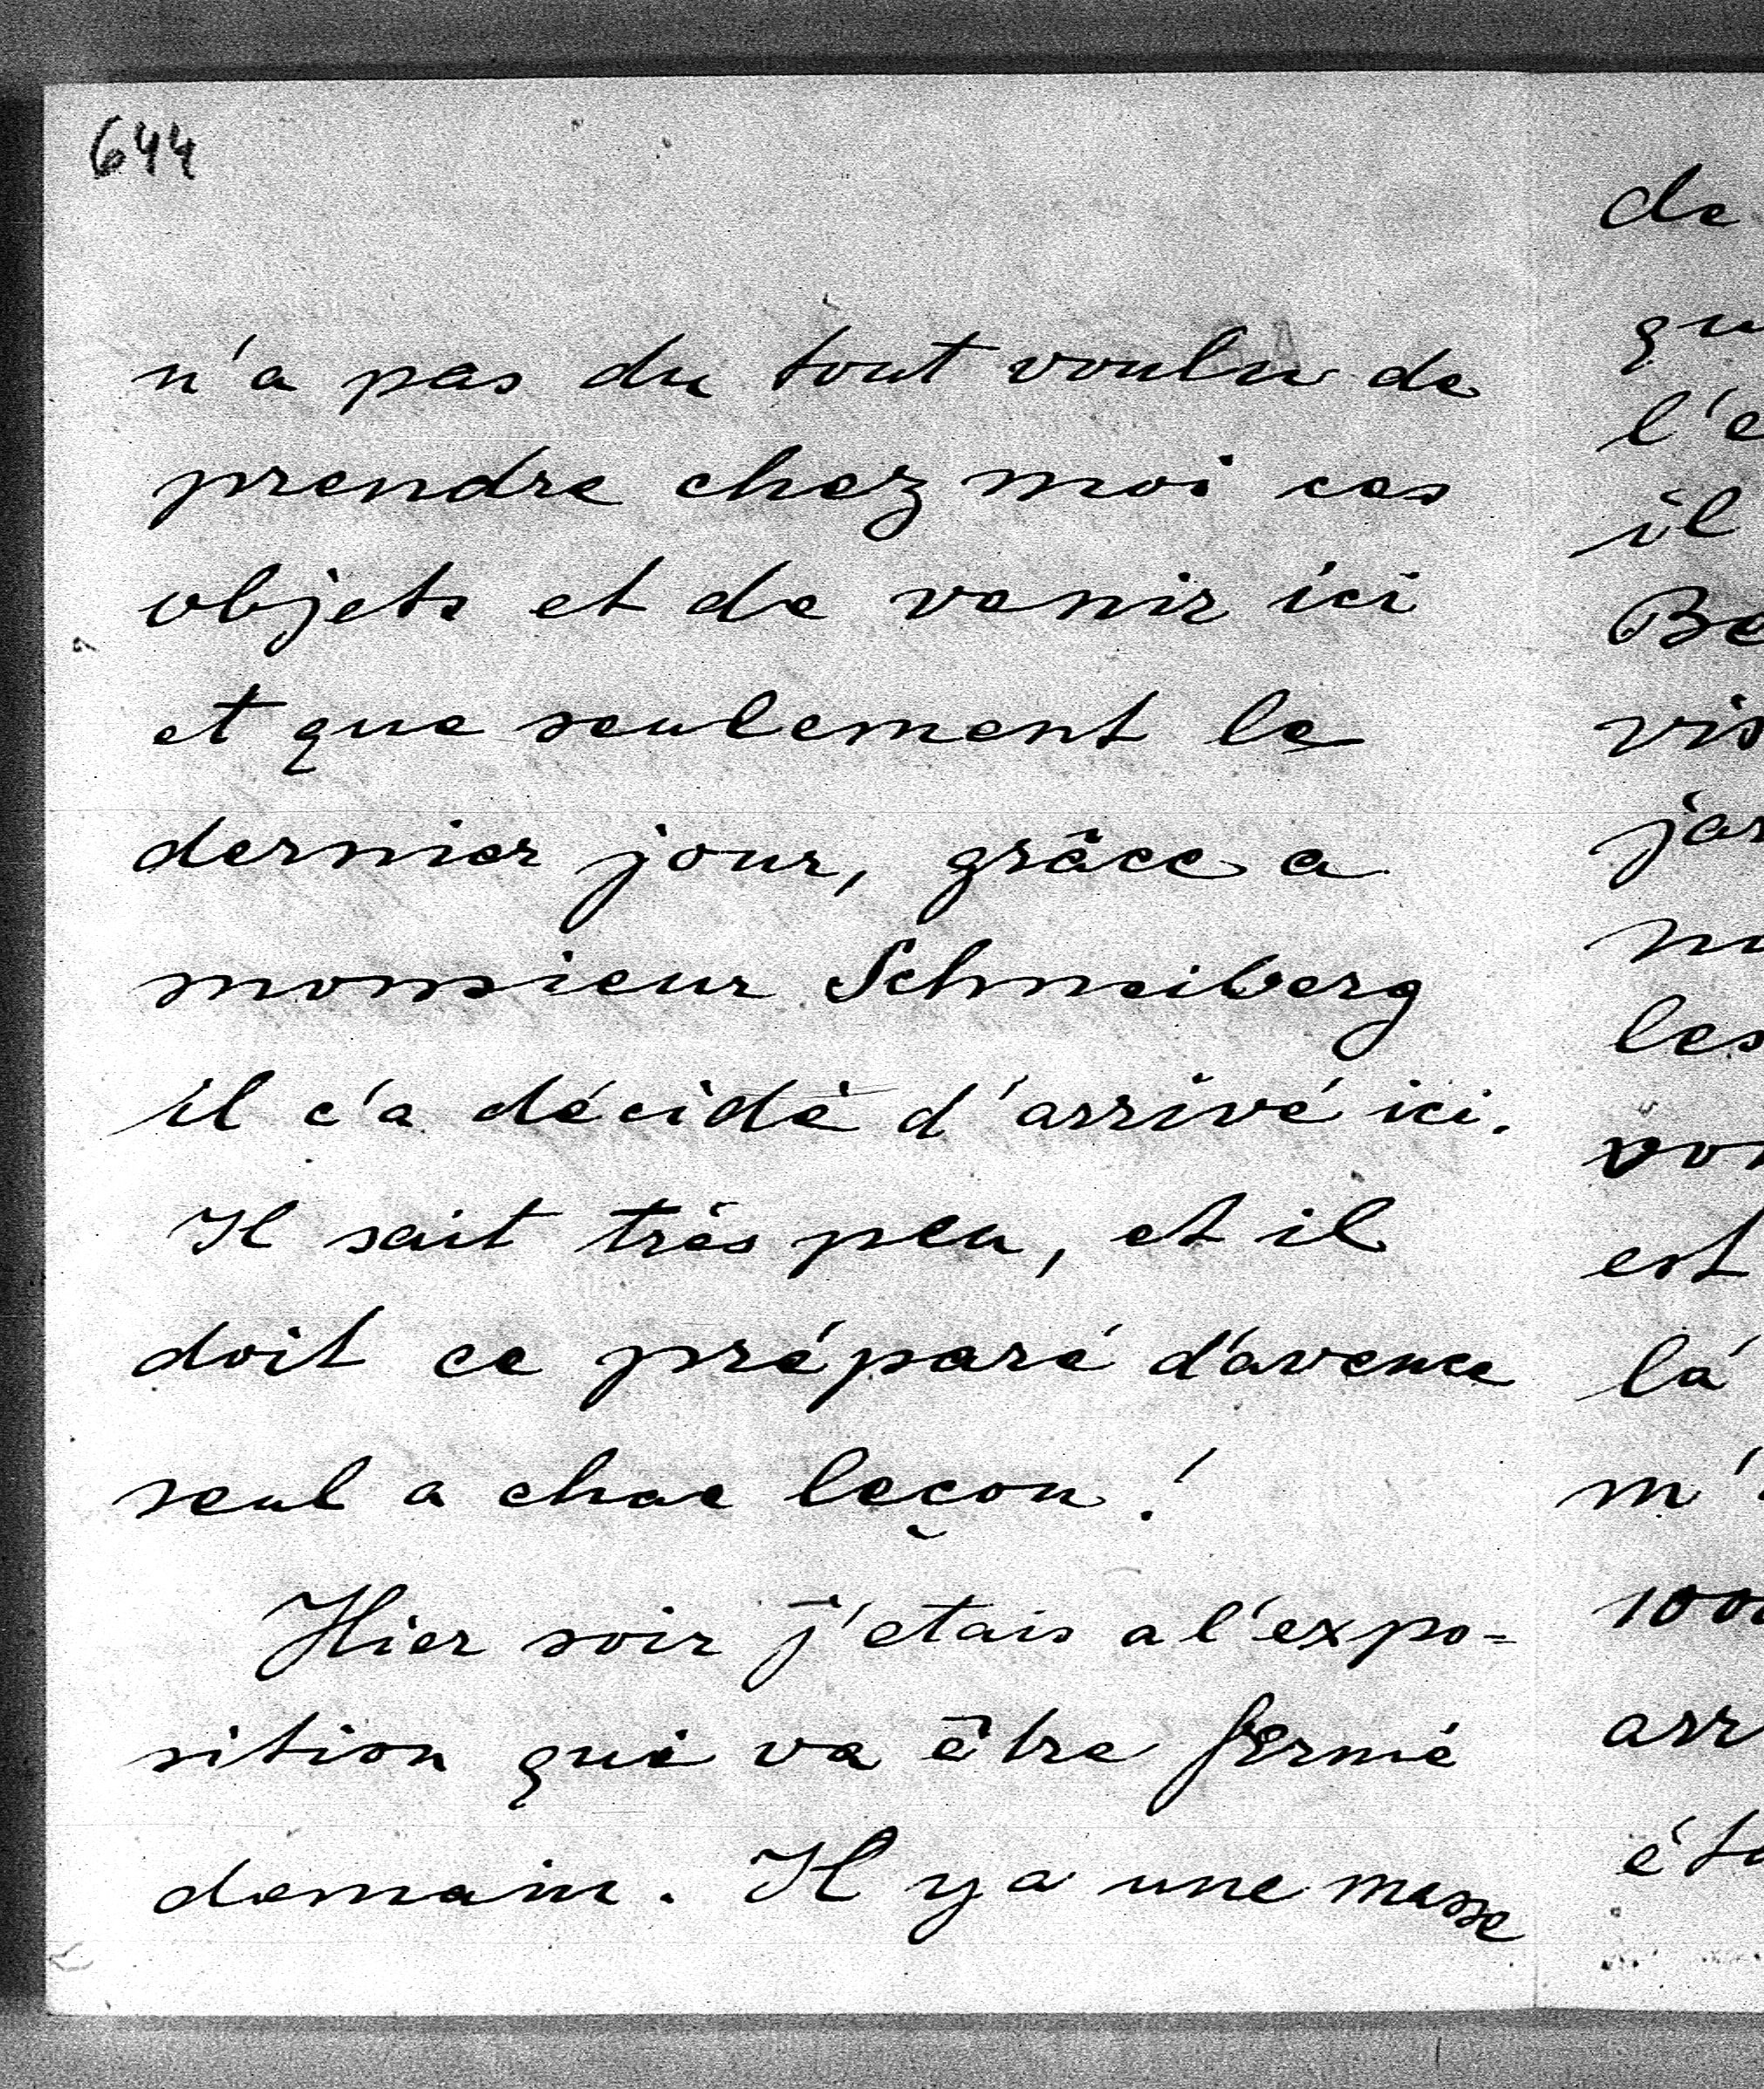 644
n'a pas du tout voulu de
prendre chez moi ces
objets et de venir ici
et que seulement le
dernier jour, grâce a
monsieur Schneiberg
il c'a décidé d'arrivé ici.
Il sait très peu, et il
doit ce préparé d'avence
seul a chae leçon!
Hier soir j'etais a l'expo-
sition qui va être fermé
demain. Il y a une masse
de
qu
l'e
il
Bo
vis
jar
no
les
vou
est
là
m'
100
arr
éta